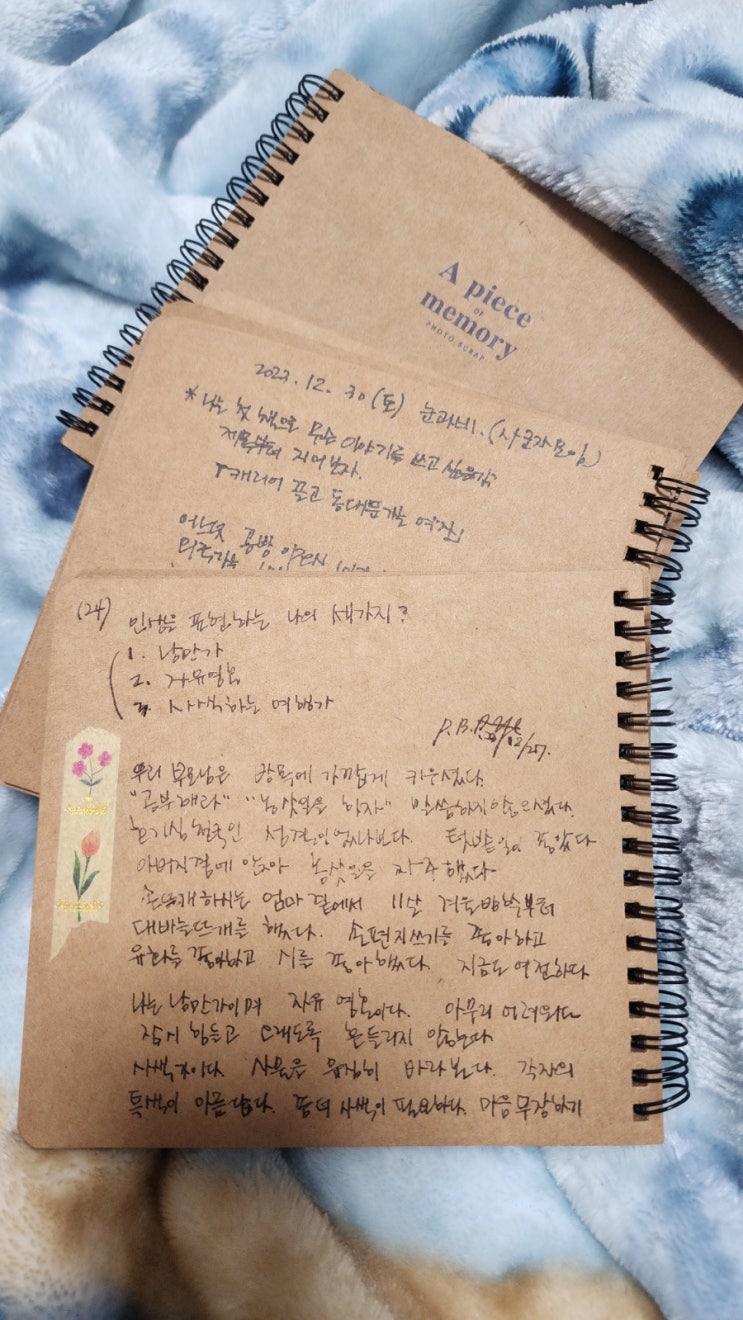 A piece
OF
memory
PHOTO SCRAP
2023. 12. 30 (토) 눈과비. (사 모임)
* 나는 첫 책으로 무슨 이야기를 쓰고 싶은가?
제목부터 지어보자.
「캐리어 끌고 동대문가는 여자」
어느덧 공방
(24) 인생을 표현하는 나의 세가지?
1. 낭만가
2. 자유영혼
3. 사색하는 여행가
12/27.
우리 부모님은 방목에 가깝게 키우셨다.
"공부해라" "농삿일을 하자" 말씀하지않으셨다.
호기심천국인 성격이었나보다. 텃밭일이 좋았다
아버지곁에 앉아 농삿일을 자주 했다
손뜨개하시는 엄마 곁에서 11살 겨울방학부터
대바늘뜨개를 했다. 손편지쓰기를 좋아하고
유화를 좋아하고 시를 좋아했다. 지금도 여전하다
나는 낭만가이며 자유 영혼이다. 아무리 어려워도
잠시 힘들고 오래도록 흔들리지 않는다
사색가이다. 사물을 유심히 바라본다. 각자의
특색이 아름답다. 좀더 사색이 필요하다. 마음무장하기